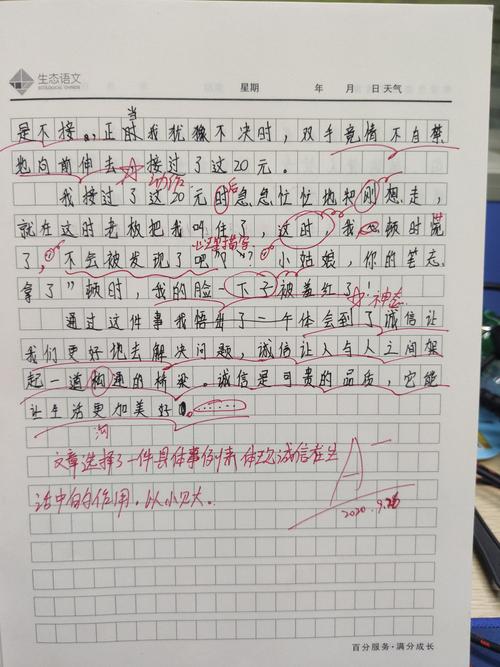 生态语文
ECOLOGICAL CHINESE
星期 年 月 日 天气
当
是不接。正时我犹豫不决时，双手竟情不自禁
地向前伸去 接过了这20元。
动作
我接过了这20元时后急急忙忙地刚想走，
就在这时老板把我叫住了，这时 我 顿时慌
心理描写
了，“不会被发现了吧”？“小姑娘，你的笔忘
拿了”顿时，我的脸一下子被羞红了！
神态
通过这件事我悟 了一个体会到了诚信让
我们更好地去解决问题，诚信让人与人之间架
起一道构通的桥梁。诚信是可贵的品质，它能
让生活更加美好
沟
文章选择了一件具体事例 体现诚信在生
活中的作用，以小见大。
A
2020.9.
百分服务·满分成长